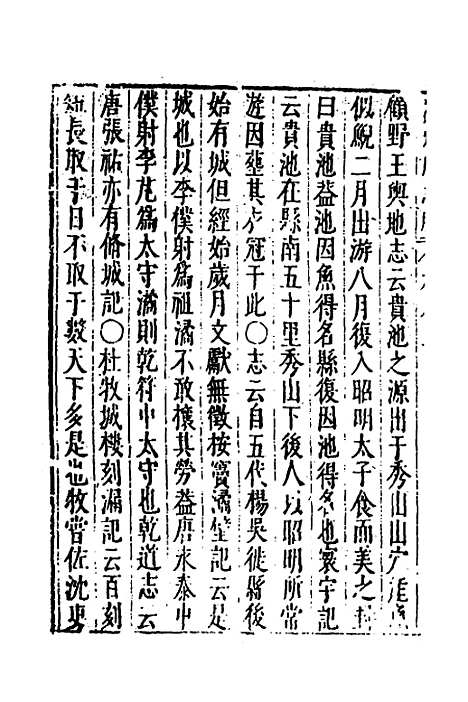 顧野王輿地志云貴池之源出于秀山山穴產魚
似鯢二月出游八月復入昭明太子食而美之封
曰貴池益池因魚得名縣復因池得名也寰宇記
云貴池在縣南五十里秀山下後人以昭明所常
遊因塟其衣冠于此〇志云自五代楊吳徙縣後
始有城但經始歲月文獻無徵按竇潏堂記云是
城也以李僕射爲祖潏不敢攘其勞益唐永泰中
僕射李芃爲太守潏則乾符中太守也乾道志云
唐張祐亦有脩城記〇杜牧城樓刻漏記云百刻
短長取于日不取于數天下多是也牧嘗佐沈吏